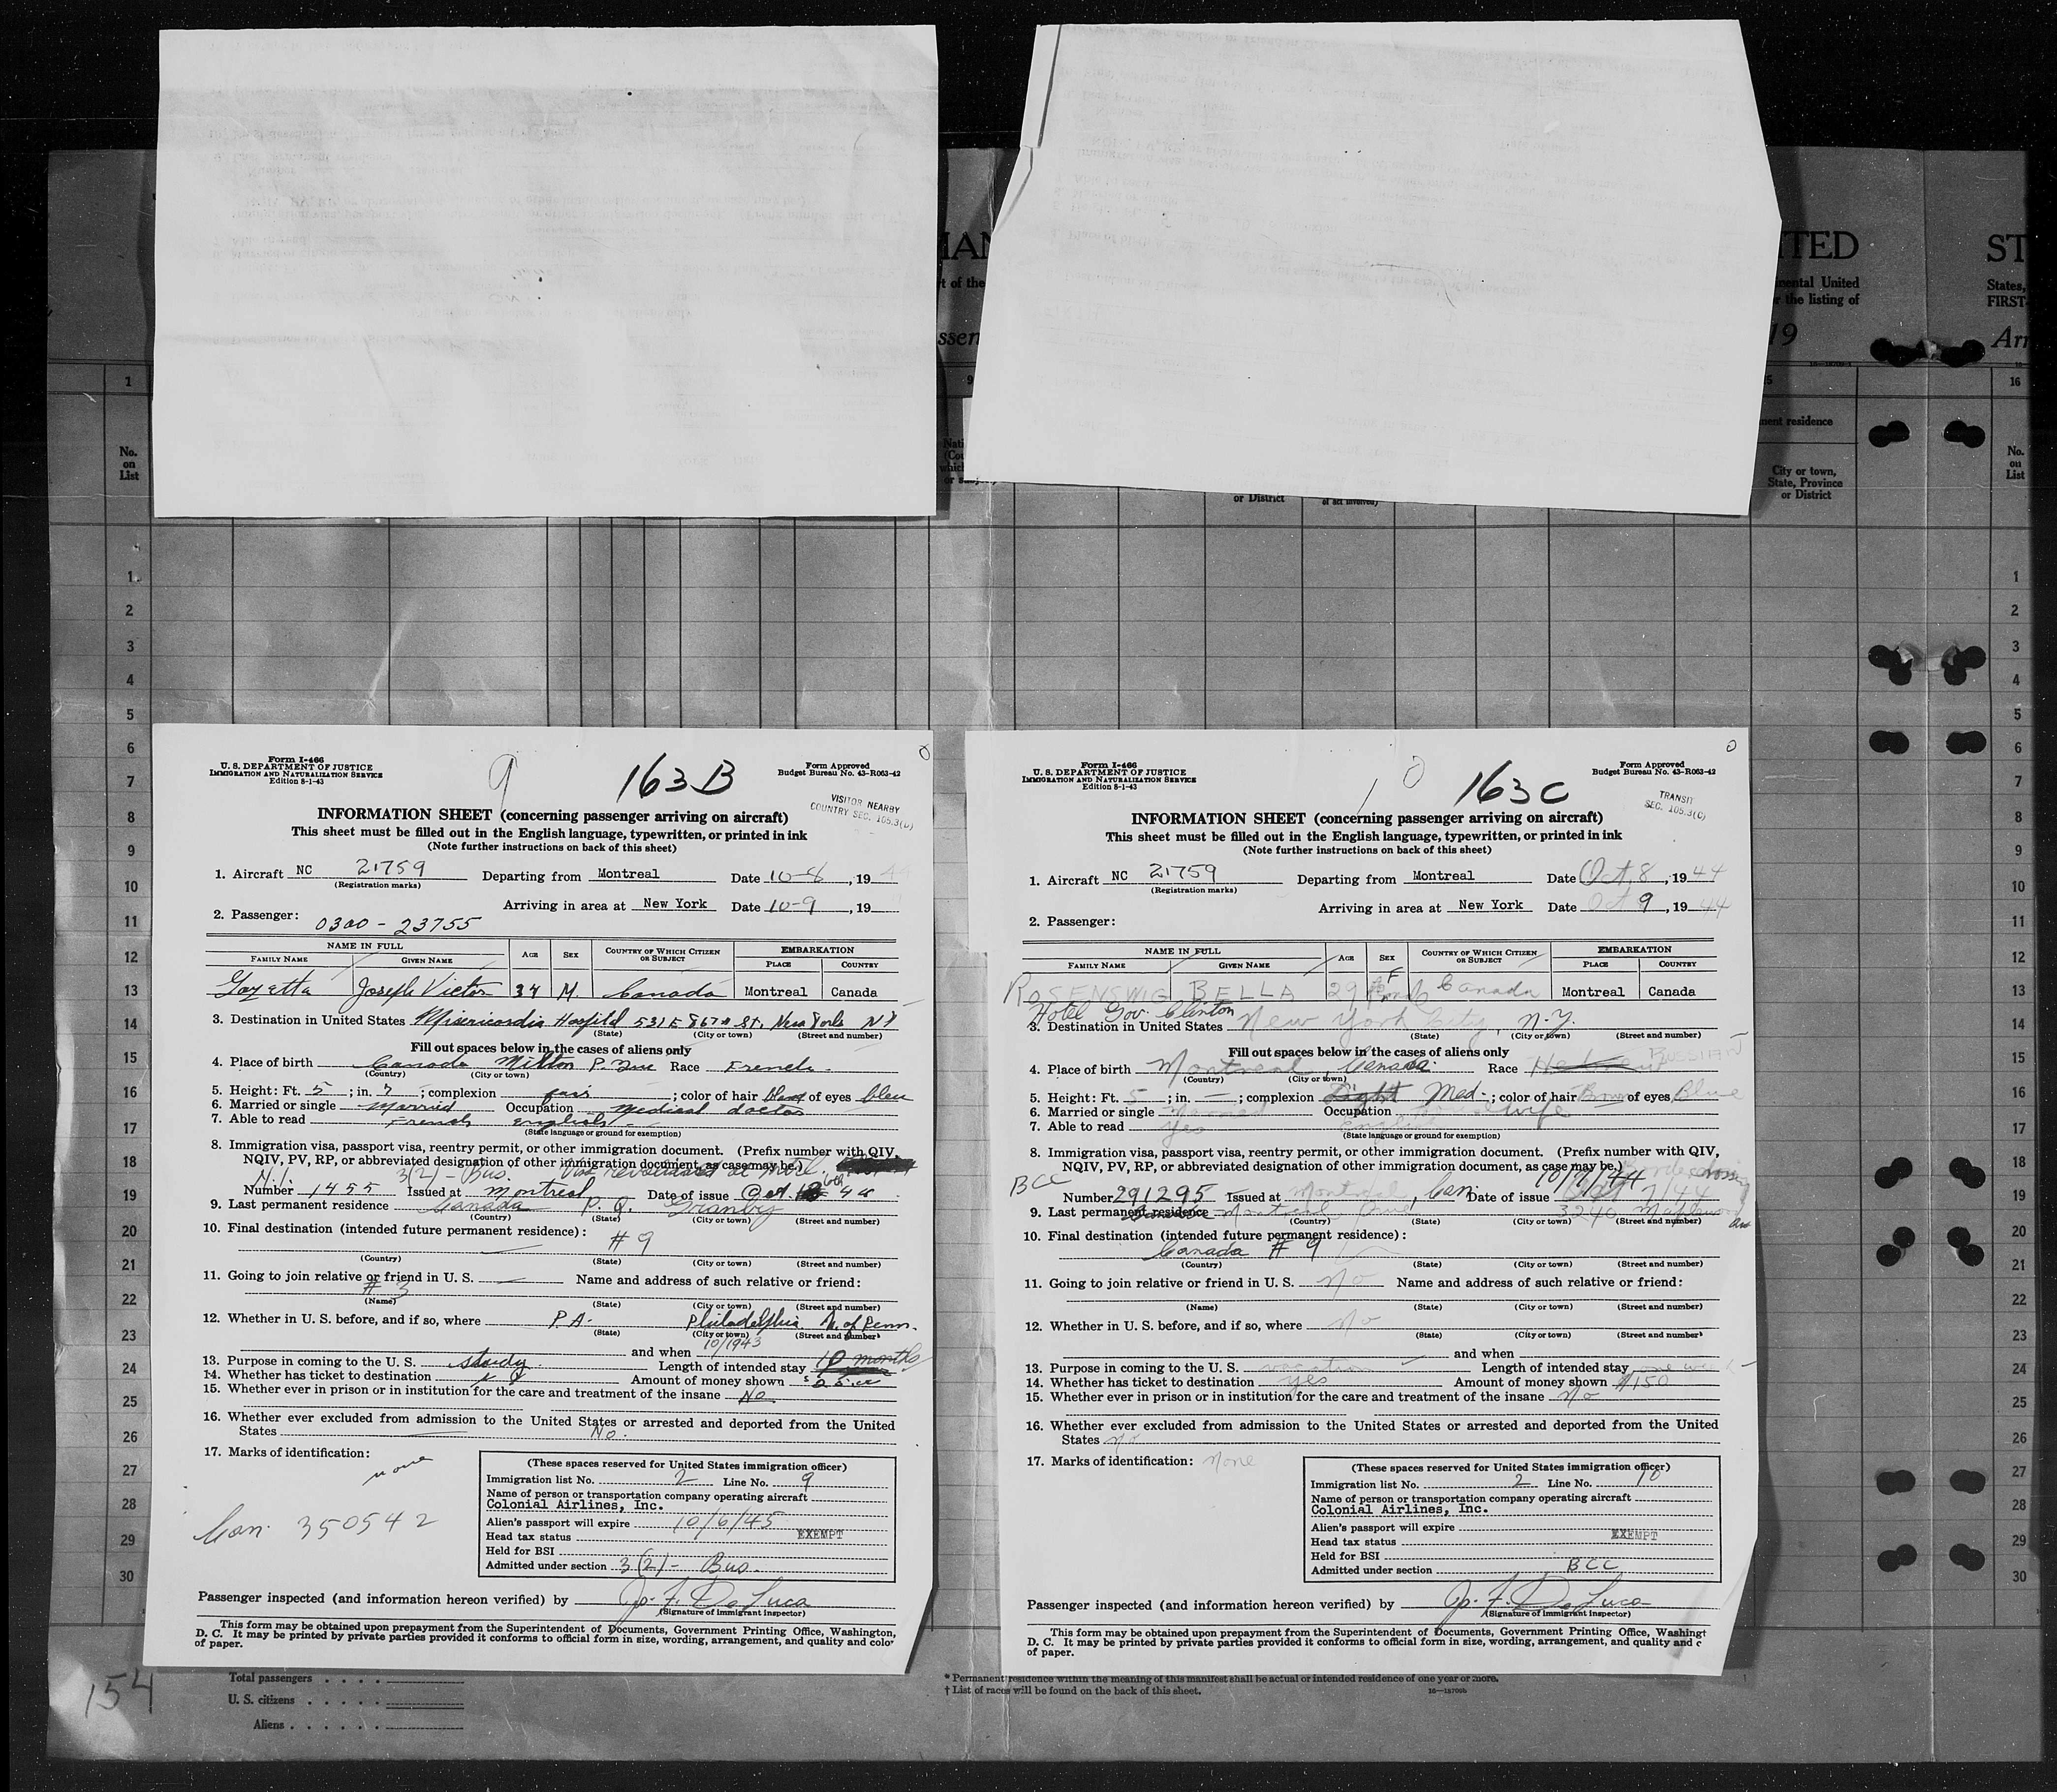 MAN
TED
ST
t of the
nental United
r the listing of
States,
FIRST-
ssen
19
Arr
1
9
5
16
No.
on
List
Nati
(Cou
which
or subj
or District
of act involved)
nent residence
City or town,
State, Province
or District
No.
on
List
1
2
3
4
5
6
7
8
9
10
11
12
13
14
15
16
17
18
19
20
21
22
23
24
25
26
27
28
29
30
Form I-466
U. S. DEPARTMENT OF JUSTICE
IMMIGRATION AND NATURALIZATION SERVICE
Edition 8-1-43
9
163B
Form Approved
Budget Bureau No. 43-R063-42
VISITOR NEARBY
COUNTRY SEC. 105.3(D)
INFORMATION SHEET (concerning passenger arriving on aircraft)
This sheet must be filled out in the English language, typewritten, or printed in ink
(Note further instructions on back of this sheet)
1. Aircraft NC 21759 Departing from Montreal Date 10-8, 19 44
(Registration marks)
Arriving in area at New York Date 10-9, 19
2. Passenger: 0300 - 23755
NAME IN FULL AGE SEX COUNTRY OF WHICH CITIZEN OR SUBJECT EMBARKATION
FAMILY NAME GIVEN NAME PLACE COUNTRY
Joseph Victor 34 M. Canada Montreal Canada
3. Destination in United States Misericordia Hospital 531 E 86th St. New York NY
(State) (City or town) (Street and number)
Fill out spaces below in the cases of aliens only
4. Place of birth Canada Milton P. Que Race French
(Country) (City or town)
5. Height: Ft. 5; in. 7; complexion fair; color of hair of eyes bleu
6. Married or single Married Occupation Medical doctor
7. Able to read French English
(State language or ground for exemption)
8. Immigration visa, passport visa, reentry permit, or other immigration document. (Prefix number with QIV,
NQIV, PV, RP, or abbreviated designation of other immigration document, as case may be.)
3(2) - Bus.
Number 1455 Issued at Montreal Date of issue Oct 44
9. Last permanent residence Canada P. Q. Granby
(Country) (State) (City or town) (Street and number)
10. Final destination (intended future permanent residence):
# 9
(Country) (State) (City or town) (Street and number)
11. Going to join relative or friend in U. S. Name and address of such relative or friend:
# 3
(Name) (State) (City or town) (Street and number)
12. Whether in U. S. before, and if so, where P.A. Philadelphia U. of Penn.
(State) (City or town) (Street and number)
and when 10/1943
13. Purpose in coming to the U. S. study Length of intended stay 10 months
14. Whether has ticket to destination Amount of money shown
15. Whether ever in prison or in institution for the care and treatment of the insane No
16. Whether ever excluded from admission to the United States or arrested and deported from the United
States No.
17. Marks of identification: none
Can. 350542
(These spaces reserved for United States immigration officer)
Immigration list No. 2 Line No. 9
Name of person or transportation company operating aircraft
Colonial Airlines, Inc.
Alien's passport will expire 10/6/45
Head tax status EXEMPT
Held for BSI
Admitted under section 3(2) - Bus.
Passenger inspected (and information hereon verified) by Jo. F. DeLuca
(Signature of immigrant inspector)
This form may be obtained upon prepayment from the Superintendent of Documents, Government Printing Office, Washington,
D. C. It may be printed by private parties provided it conforms to official form in size, wording, arrangement, and quality and color
of paper.
Form I-466
U. S. DEPARTMENT OF JUSTICE
IMMIGRATION AND NATURALIZATION SERVICE
Edition 8-1-43
10
163C
Form Approved
Budget Bureau No. 43-R063-42
TRANSIT
SEC. 105.3(C)
INFORMATION SHEET (concerning passenger arriving on aircraft)
This sheet must be filled out in the English language, typewritten, or printed in ink
(Note further instructions on back of this sheet)
1. Aircraft NC 21759 Departing from Montreal Date Oct. 8, 19 44
(Registration marks)
Arriving in area at New York Date Oct 9, 19 44
2. Passenger:
NAME IN FULL AGE SEX COUNTRY OF WHICH CITIZEN OR SUBJECT EMBARKATION
FAMILY NAME GIVEN NAME PLACE COUNTRY
ROSENSWIG BELLA 29 F Canada Montreal Canada
Hotel Gov. Clinton
3. Destination in United States New York City, N.Y.
(State) (City or town) (Street and number)
Fill out spaces below in the cases of aliens only
4. Place of birth Montreal, Canada. Race Hebrew RUSSIAN
(Country) (City or town)
5. Height: Ft. 5; in. —; complexion Light Med.; color of hair Brown of eyes Blue
6. Married or single Married Occupation Housewife
7. Able to read Yes English
(State language or ground for exemption)
8. Immigration visa, passport visa, reentry permit, or other immigration document. (Prefix number with QIV,
NQIV, PV, RP, or abbreviated designation of other immigration document, as case may be.) Border crossing
BCC 10/7/44
Number 291295 Issued at Montreal, Can. Date of issue Oct 7/44
9. Last permanent residence Montreal 3240 Maplewood Ave
(Country) (State) (City or town) (Street and number)
10. Final destination (intended future permanent residence):
Canada # 9
(Country) (State) (City or town) (Street and number)
11. Going to join relative or friend in U. S. no Name and address of such relative or friend:
(Name) (State) (City or town) (Street and number)
12. Whether in U. S. before, and if so, where no
(State) (City or town) (Street and number)
and when
13. Purpose in coming to the U. S. vacation Length of intended stay one week
14. Whether has ticket to destination yes Amount of money shown $150
15. Whether ever in prison or in institution for the care and treatment of the insane no
16. Whether ever excluded from admission to the United States or arrested and deported from the United
States no
17. Marks of identification: none
(These spaces reserved for United States immigration officer)
Immigration list No. 2 Line No. 10
Name of person or transportation company operating aircraft
Colonial Airlines, Inc.
Alien's passport will expire
Head tax status EXEMPT
Held for BSI
Admitted under section BCC
Passenger inspected (and information hereon verified) by Jo. F. DeLuca
(Signature of immigrant inspector)
This form may be obtained upon prepayment from the Superintendent of Documents, Government Printing Office, Washingt
D. C. It may be printed by private parties provided it conforms to official form in size, wording, arrangement, and quality and c
of paper.
1
2
3
4
5
6
7
8
9
10
11
12
13
14
15
16
17
18
19
20
21
22
23
24
25
26
27
28
29
30
154
Total passengers . . . .
U. S. citizens . . . . .
Aliens . . . . . .
* Permanent residence within the meaning of this manifest shall be actual or intended residence of one year or more.
† List of races will be found on the back of this sheet.